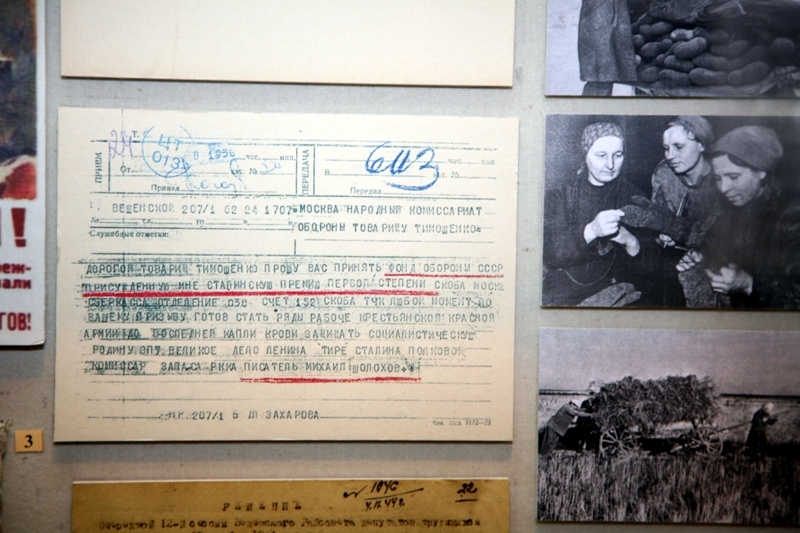 !
реж-
вали
ГОВ!
3
ПРИЕМ
24
Т.
ЦТ
0131
От
час.
мин.
Принял
ПЕРЕДАЧА
603
час.
мин.
В
Передал
ВЕШЕНСКОЙ 207/1 62 24 1707
МОСКВА НАРОДНЫЙ КОМИССАРИАТ
ОБОРОНЫ ТОВАРИЩУ ТИМОШЕНКО=
Служебные отметки:
ДОРОГОЙ ТОВАРИЩ ТИМОШЕНКО ПРОШУ ВАС ПРИНЯТЬ ФОНД ОБОРОНЫ СССР
ПРИСУЖДЕННУЮ МНЕ СТАЛИНСКУЮ ПРЕМИЮ ПЕРВОЙ СТЕПЕНИ СКОБА МОСК
СБЕРКАССА ОТДЕЛЕНИЕ 030 СЧЕТ 152 СКОБА ТЧК ЛЮБОЙ МОМЕНТ ПО
ВАШЕМУ ПРИЗЫВУ ГОТОВ СТАТЬ РЯДЫ РАБОЧЕ КРЕСТЬЯНСКОЙ КРАСНОЙ
АРМИИ ДО ПОСЛЕДНЕЙ КАПЛИ КРОВИ ЗАЩИЩАТЬ СОЦИАЛИСТИЧЕСКУЮ
РОДИНУ ЗПТ ВЕЛИКОЕ ДЕЛО ЛЕНИНА ТИРЕ СТАЛИНА ПОЛКОВОЙ
КОМИССАР ЗАПАСА РККА ПИСАТЕЛЬ МИХАИЛ ШОЛОХОВ+
207/1 Б ЗАХАРОВА
РЕШЕНИЕ
№ 1046
22
очередной 12-й сессии Вешенского Райсовета депутатов трудящихся